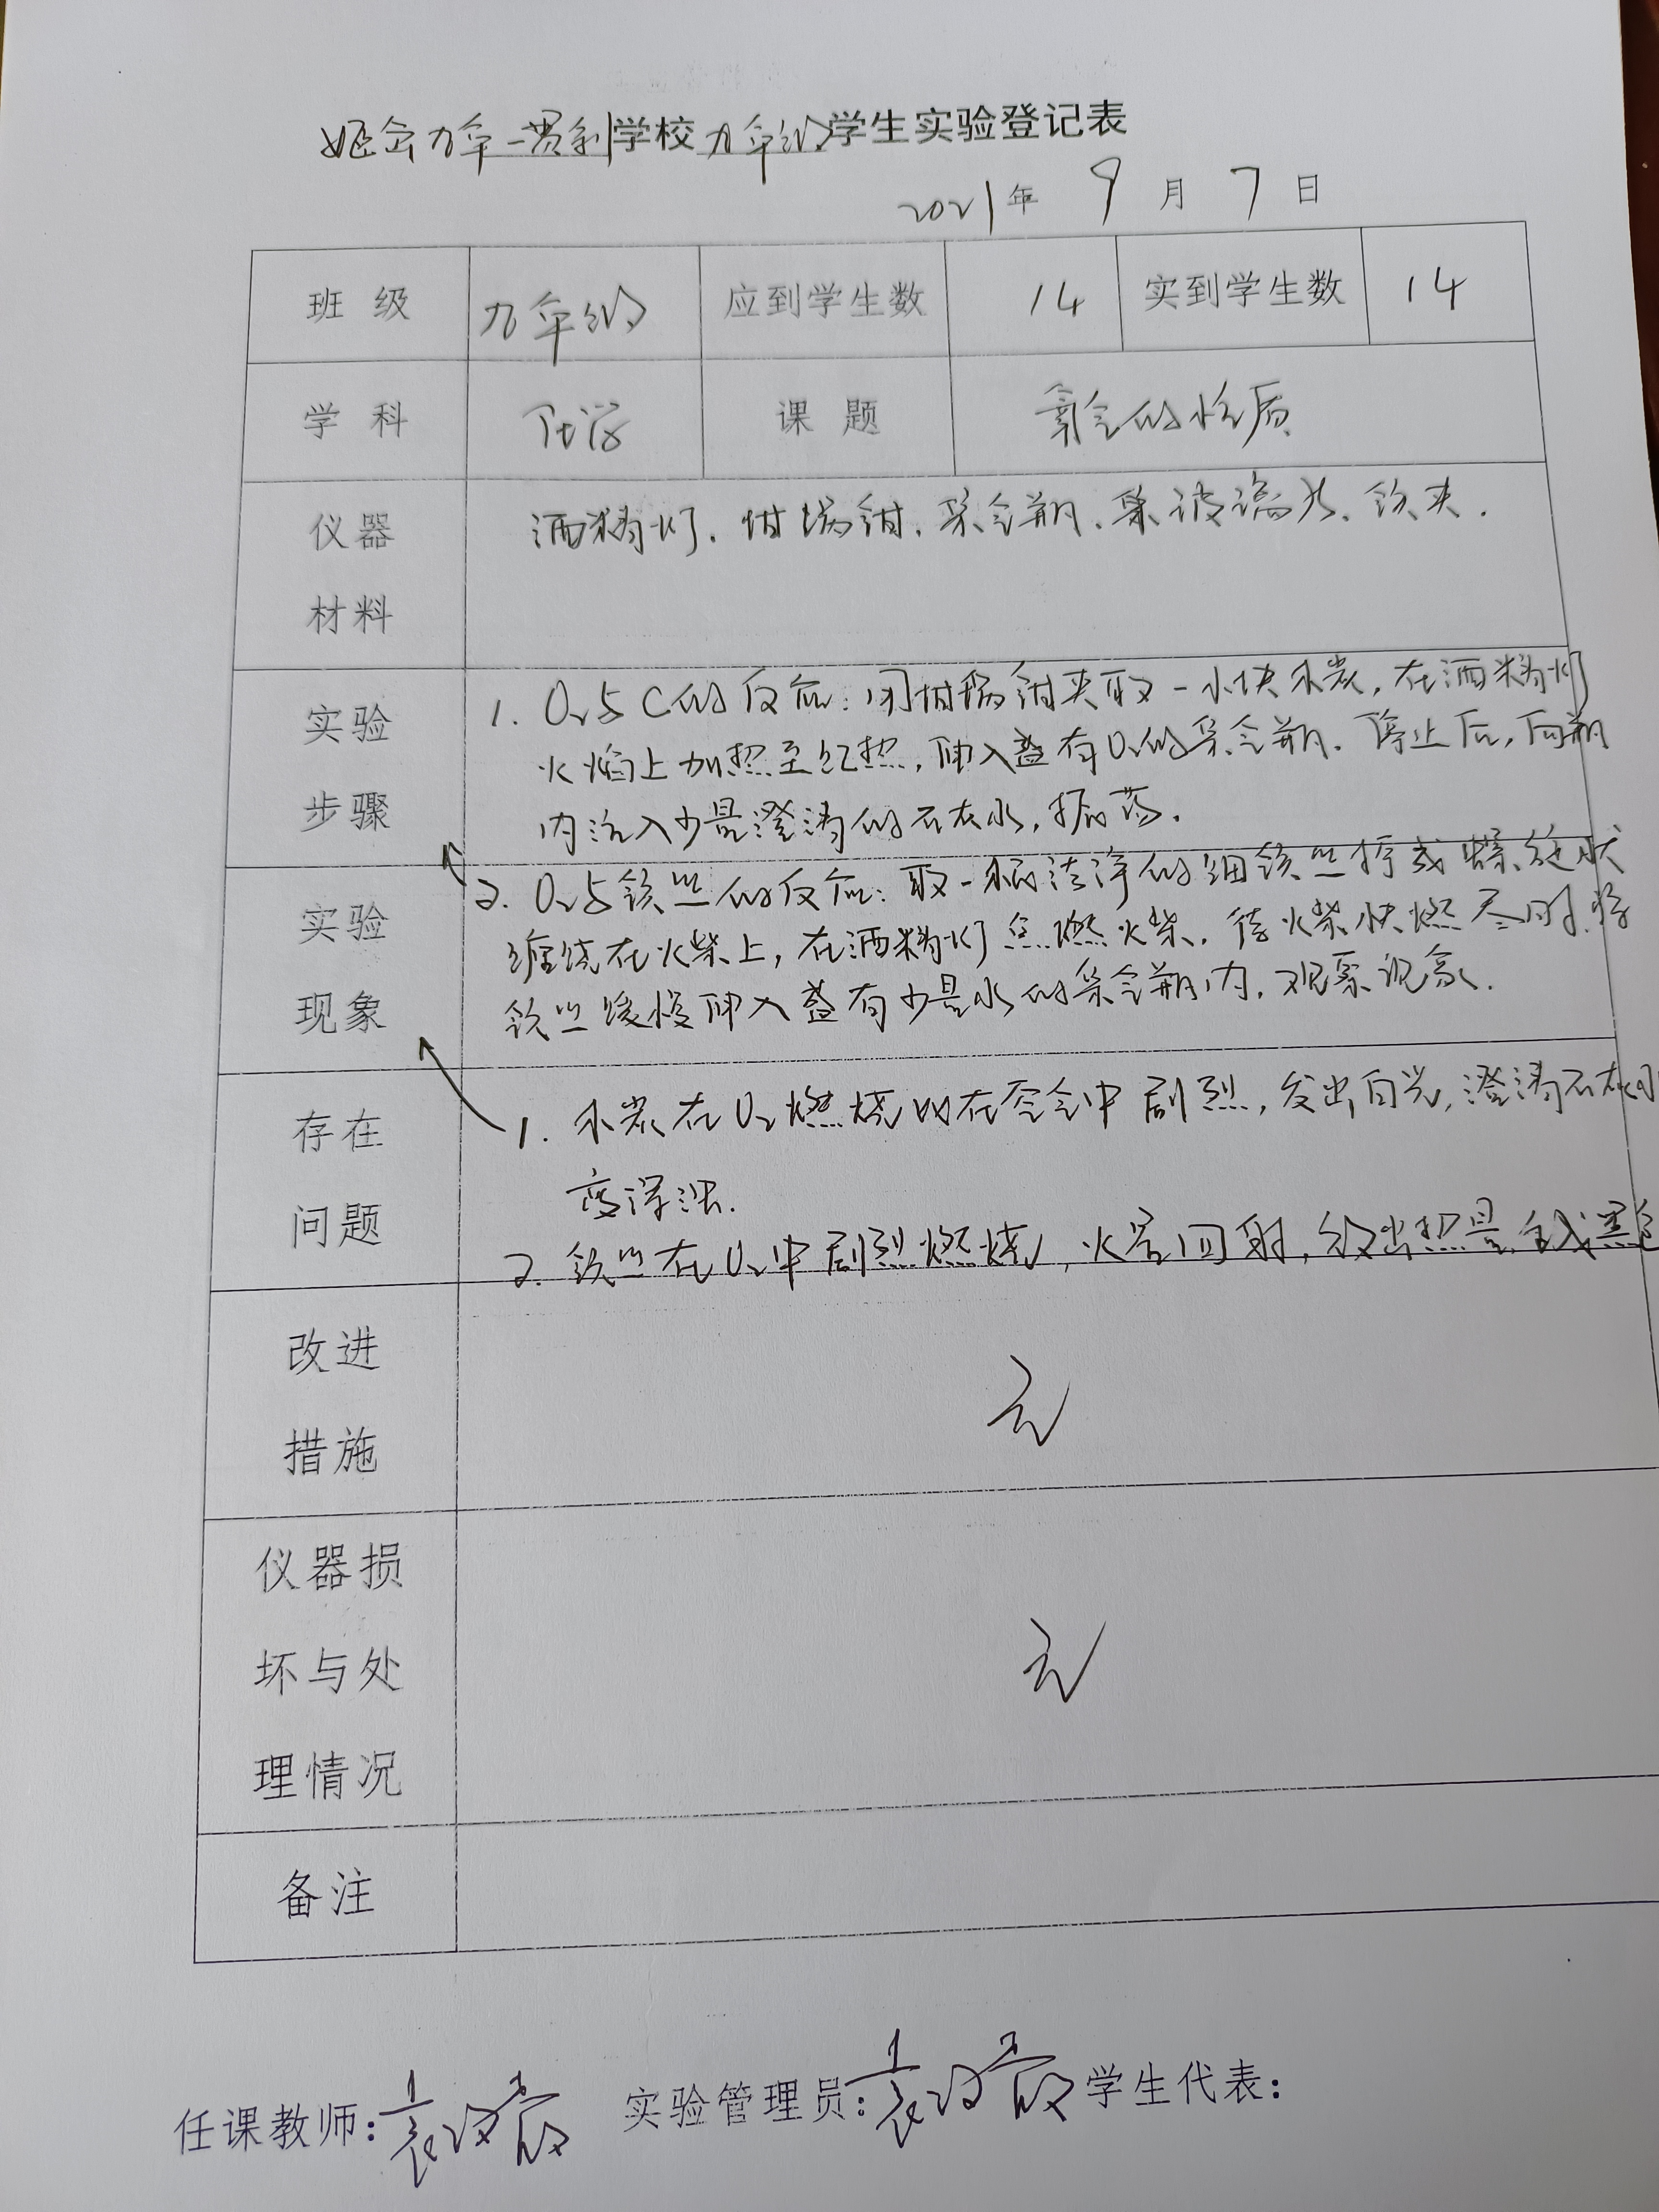 姬佘九年一贯制学校九年级学生实验登记表
2021年 9 月 7 日
班 级 九年级 应到学生数 14 实到学生数 14
学 科 化学 课 题 氧气的性质
仪器 材料 酒精灯、坩埚钳、集气瓶、集玻璃片、铁夹.
实验 步骤
1. O₂与C的反应:用坩埚钳夹取一小块木炭,在酒精灯
火焰上加热至红热,伸入盛有O₂的集气瓶.停止后,向瓶
内注入少量澄清的石灰水,振荡.
实验 现象
2. O₂与铁丝的反应:取一根洁净的细铁丝拧成螺旋状
缠绕在火柴上,在酒精灯点燃火柴.待火柴快燃尽时,将
铁丝缓慢伸入盛有少量水的集气瓶内.观察现象.
存在 问题
1. 木炭在O₂燃烧比在空气中剧烈,发出白光,澄清石灰水
变浑浊.
2. 铁丝在O₂中剧烈燃烧,火星四射,放出热量,生成黑色
改进 措施 无
仪器损 坏与处 理情况 无
备注
任课教师: 实验管理员: 学生代表: